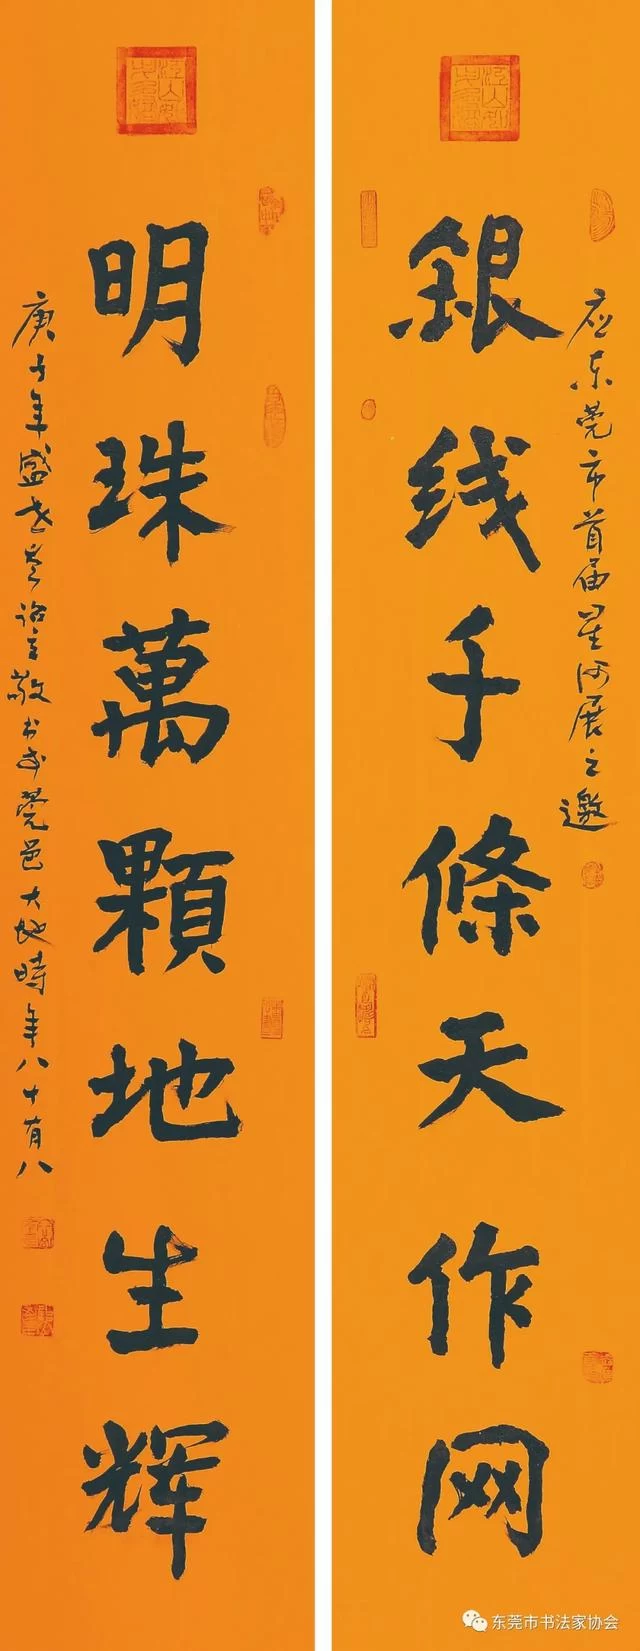 应东莞市首届星河展之邀
銀线千條天作网
明珠萬顆地生辉
庚子年盛
敬书于莞邑大地時年八十有八
东莞市书法家协会